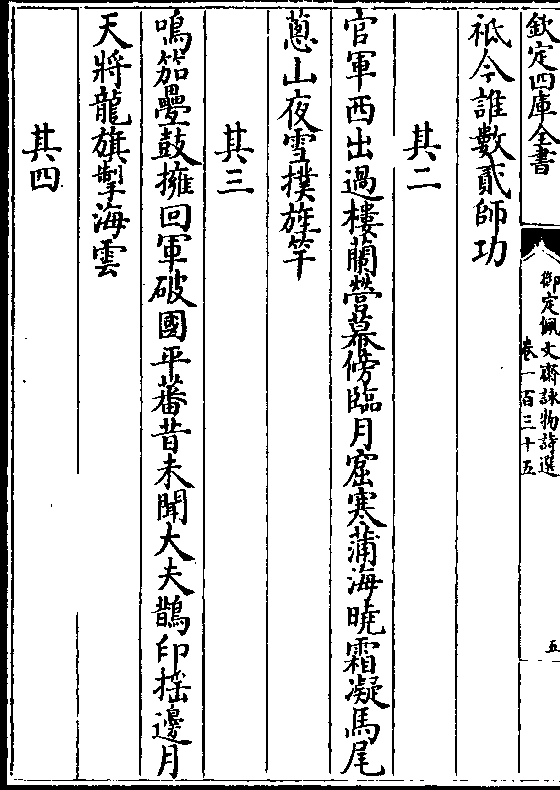 欽定四庫全書
御定佩文齋詠物詩選
卷一百三十五
五
祇今誰數貳師功
其二
官軍西出過樓蘭營幕傍臨月窟寒蒲海曉霜凝馬尾
蔥山夜雪撲旌竿
其三
鳴笳疊鼓擁回軍破國平蕃昔未聞大夫鵲印搖邊月
天將龍旗掣海雲
其四